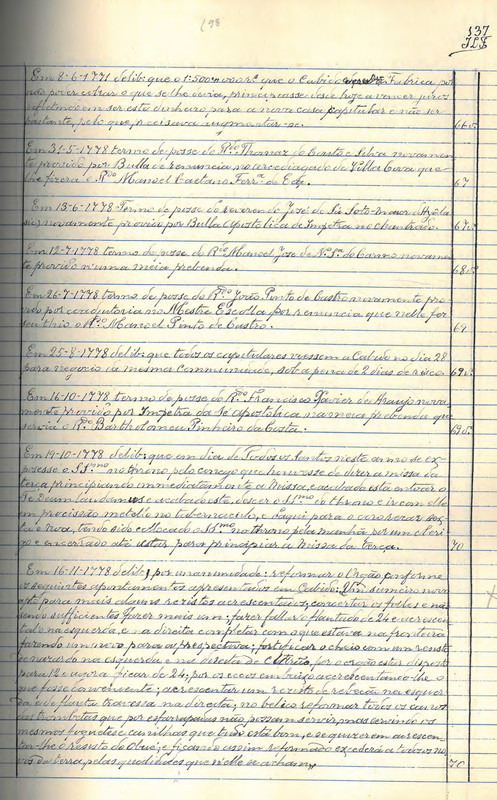 198
137
Em 8-6-1771 delib: que o 1:500$000 rs que o Cabido Fabrica por
não poder cobrar o que se lhe devia, principiasse desde hoje a vencer juros
reflectindo em ser este dinheiro para a nova casa capitular e não ser
bastante, pelo que, precisava augmentar-se. 66v.
Em 31-5-1778 termo de posse do Rdo Thomaz do Couto e Silva novamen-
te provido por Bulla de renuncia no arcediagado de Villa Cova que
lhe fizera o Rdo Manoel Caetano Ferra de 67
Em 13-6-1778 Termo de posse do reverendo José de Sá Soto-maior
novamente provido por Bulla Apostolica de Impetra no chantrado. 67v.
Em 12-7-1778 termo de posse do Rdo Manoel Jose de N. Sra do Carmo novamen-
te provido n'uma meia prebenda. 68v.
Em 26-7-1778 termo de posse do Rdo João Pinto de Castro novamente pro-
vido por coadjutoria no Mestre Escolla por renuncia que nelle fez
seu thio o Rdo Manoel Pinto de Castro. 69
Em 25-8-1778 delib: que todos os capitulares viessem a Cabido no dia 28
para negocio da mesma Communidade, sob a pena de 2 dias de risco. 69v.
Em 16-10-1778 termo de posse do Rdo Francisco Xavier de Araujo nova-
mente provido por Impetra da Sé Apostolica na meia prebenda que
serviu o Rdo Bartholomeu Pinheiro da Costa. 69v.
Em 19-10-1778 delib: que em dia de Todos os Santos neste anno se ex-
posesse o SSmo no throno pelo conego que houvesse de dizer a missa da
terça principiando immediatamente a Missa, e acabada esta entoar o
Te Deum laudamus e acabado este descer o SSmo do throno e ir com elle
em procissão metel-o no tabernaculo, e d'aqui para o coro rezar Sex-
ta e Noa, tendo sido collocado o SSmo no throno pela manhã por um cleri-
go e encerrado até estar para principiar a Missa da terça. 70
Em 16-11-1778 delib: por unanimidade: reformar o Orgão conforme
os seguintes apontamentos apresentados em Cabido: Um sumeiro novo
apto para mais alguns rezistos acrescentados; concertar os folles e não
sendo sufficientes fazer mais um; fazer falar o flautado de 24 e acrescen-
tal-o na esquerda, e na direita completar com o que estava na fronteira
fazendo um novo para a perspectiva; fortificar o cheio com um rezisto
de nazardo na esquerda e na direita de por o orgão estar disposto
para 12 e agora ficar de 24; por os ecos em baixo acrescentando-lhe o
que fosse conveniente; acrescentar um rezisto de rebecão na esquer-
da, e de flauta travessa na direita; no belico reformar todos os canos
das trombetas que por esfarrapados não possam servir, mas servindo os
mesmos boquetes e canilhas que tudo está bom, e se quizerem acrescen-
tar-lhe o rezisto de Oboé; e ficando assim reformado excederá a todos os no-
vos da terra, pelas qualidades que n'elle se acham 70